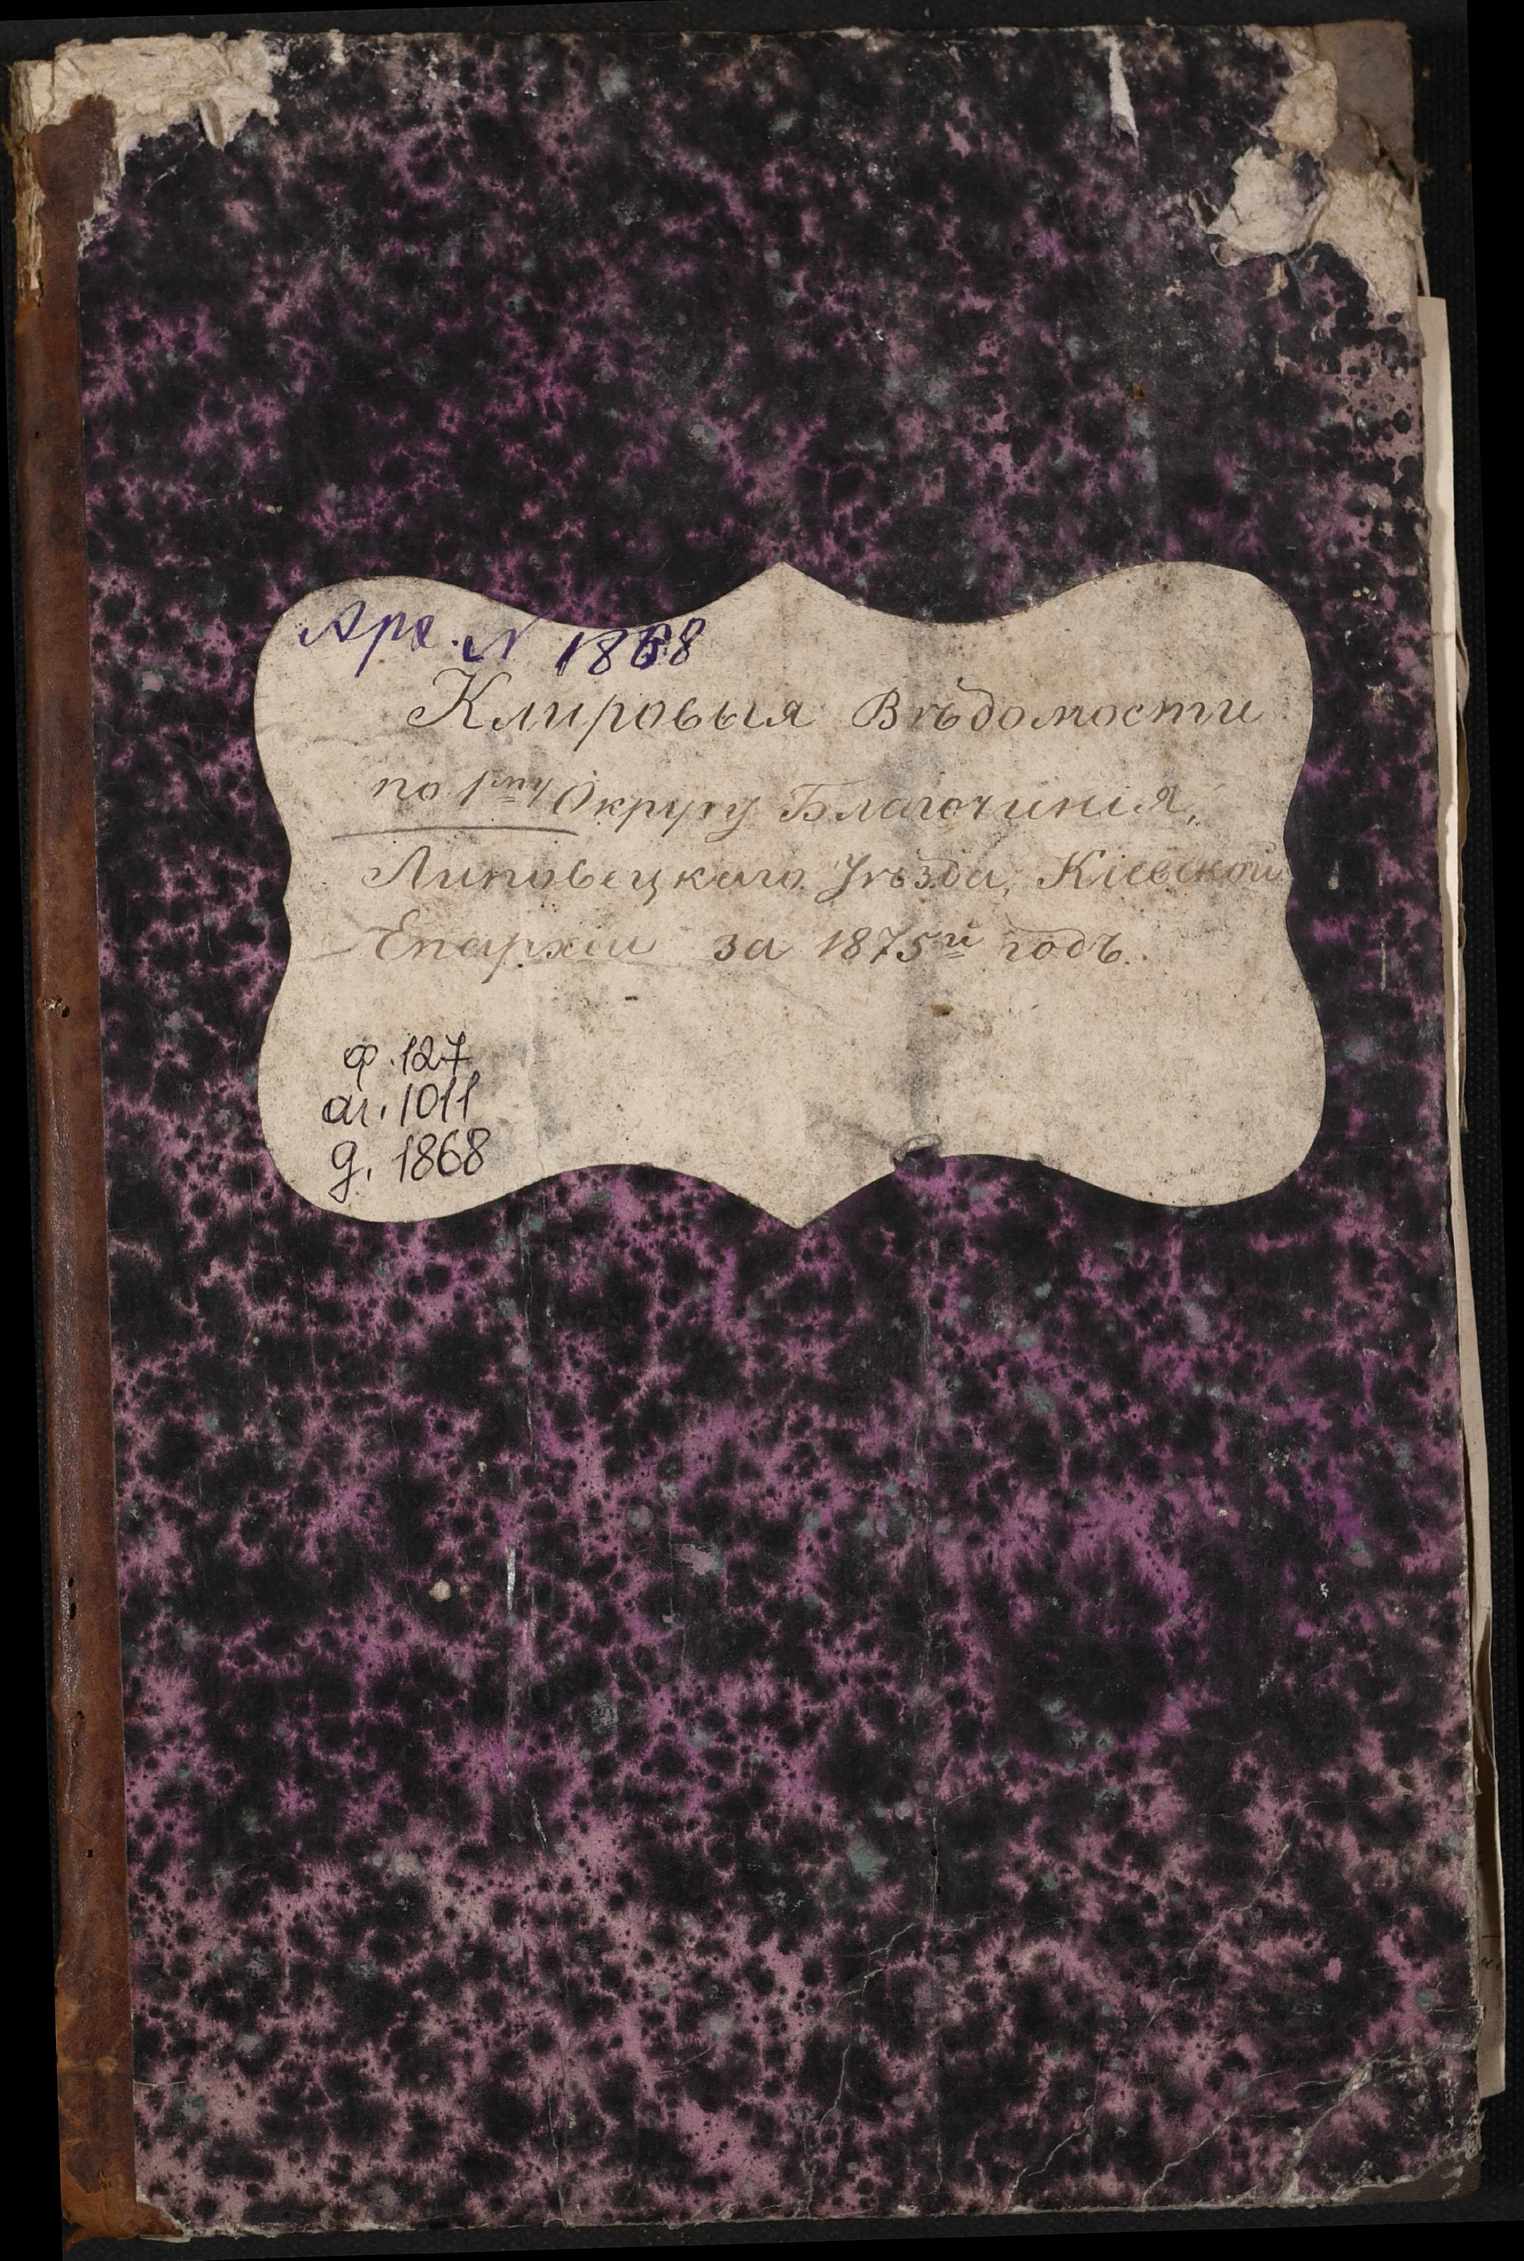 Арх. N 1868
Клировыя Вѣдомости
по 1му Округу Благочинія,
Липовецкаго Уѣзда, Кіевской
Епархіи за 1875й годъ.
ф. 127
оп. 1011
д. 1868